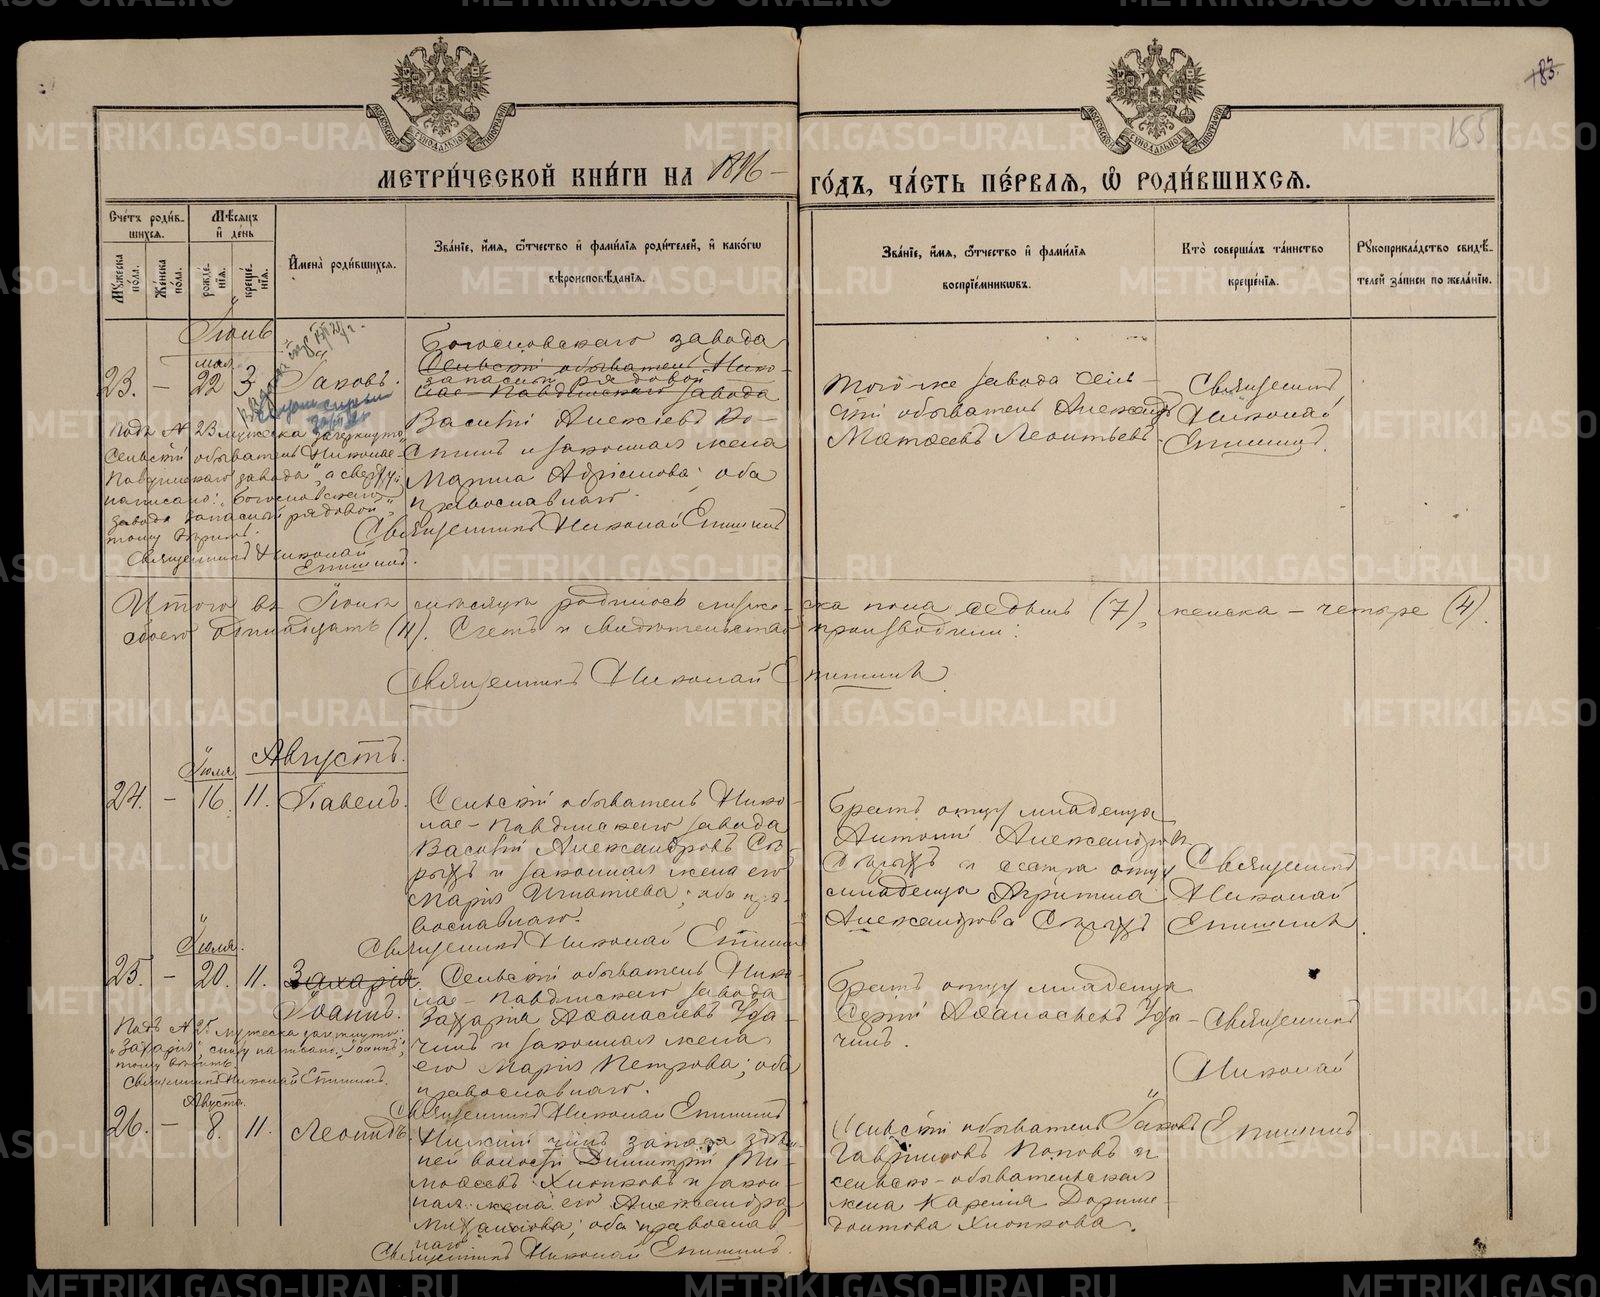 183.
155
МЕТРИ́ЧЕСКОЙ КНИ́ГИ НА 1896 – ГО́ДЪ, ЧА́СТЬ ПЕ́РВАЯ, Ѡ РОДИ́ВШИХСЯ.
Сче́тъ роди́в-
шихся.
Мѣ́сяцъ
и҆ де́нь
Му́жеска
по́ла.
Же́нска
по́ла.
рожде́-
нїя.
креще́-
нїя.
И҆мена̀ роди́вшихся.
Зва́нїе, и҆́мя, ѻ҆́тчество и҆ фами́лїя роди́телей, и҆ како́гѡ
вѣроисповѣ́данїя.
Зва́нїе, и҆́мя, ѻ҆́тчество и҆ фами́лїя
воспрїе́мникѡвъ.
Кто̀ соверша́лъ та́инство
креще́нїя.
Рꙋкоприкла́дство свидѣ́-
телей за́писи по жела́нїю.
Іюнь
мая
23. – 22 3 Іаковъ.
Богословскаго завода
Сельскій обыватель Нико-
запасный рядовой
лае-Павдинскаго завода
Василій Алексѣевъ
и законная жена
Марина Адріанова; оба
православнаго.
Священникъ Николай Епишинъ
Того же завода сель-
скій обыватель Александръ
Матѳеевъ Леонтьевъ
Священникъ
Николай
Епишинъ.
Подъ № 23 мужеска зачеркнуто
"Сельскій обыватель Николае-
Павдинскаго завода", а сверху
написано: "Богословскаго
завода запасный рядовой",
тому вѣрить.
Священникъ Николай
Епишинъ.
Итого въ Іюнѣ мѣсяцѣ родилось мужеска пола седмь (7), женска – четыре (4).
обоего одиннадцать (11). Счетъ и свидѣтельство производили:
Священникъ Николай Епишинъ
Августъ.
Іюля
24. – 16. 11. Павелъ.
Сельскій обыватель Нико-
лае-Павдинскаго завода
Василій Александровъ Ст-
рыхъ и законная жена его
Марія Игнатіева; оба пра-
вославнаго.
Священникъ Николай Епишинъ
Братъ отцу младенца
Антоній Александровъ
и сестра отцу
младенца Агрипина
Александрова
Священникъ
Николай
Епишинъ.
Іюля.
25. – 20. 11. Захарія.
Іоаннъ.
Сельскій обыватель Нико-
лае-Павдинскаго завода
Захарія Аѳанасіевъ Уда-
чинъ и законная жена
его Марія Петрова; оба
православнаго.
Священникъ Николай Епишинъ
Братъ отцу младенца
Сергій Аѳанасьевъ Уда-
чинъ.
Священникъ
Николай
Епишинъ
Подъ № 25 мужеска зачеркнуто:
"Захарія", снизу написано "Іоаннъ",
тому вѣрить.
Священникъ Николай Епишинъ.
Августа.
26. – 8. 11. Леонидъ.
Нижній чинъ запаса здѣш-
ней волости Димитрій Ти-
моѳеевъ Хлопковъ и закон-
ная жена его Александра
Михайлова; оба православ-
наго
Священникъ Николай Епишинъ.
Сельскій обыватель Іаковъ
Гавріиловъ Поповъ и
сельско-обывательская
жена Дорими-
донтова Хлопкова.
METRIKI.GASO-URAL.RU